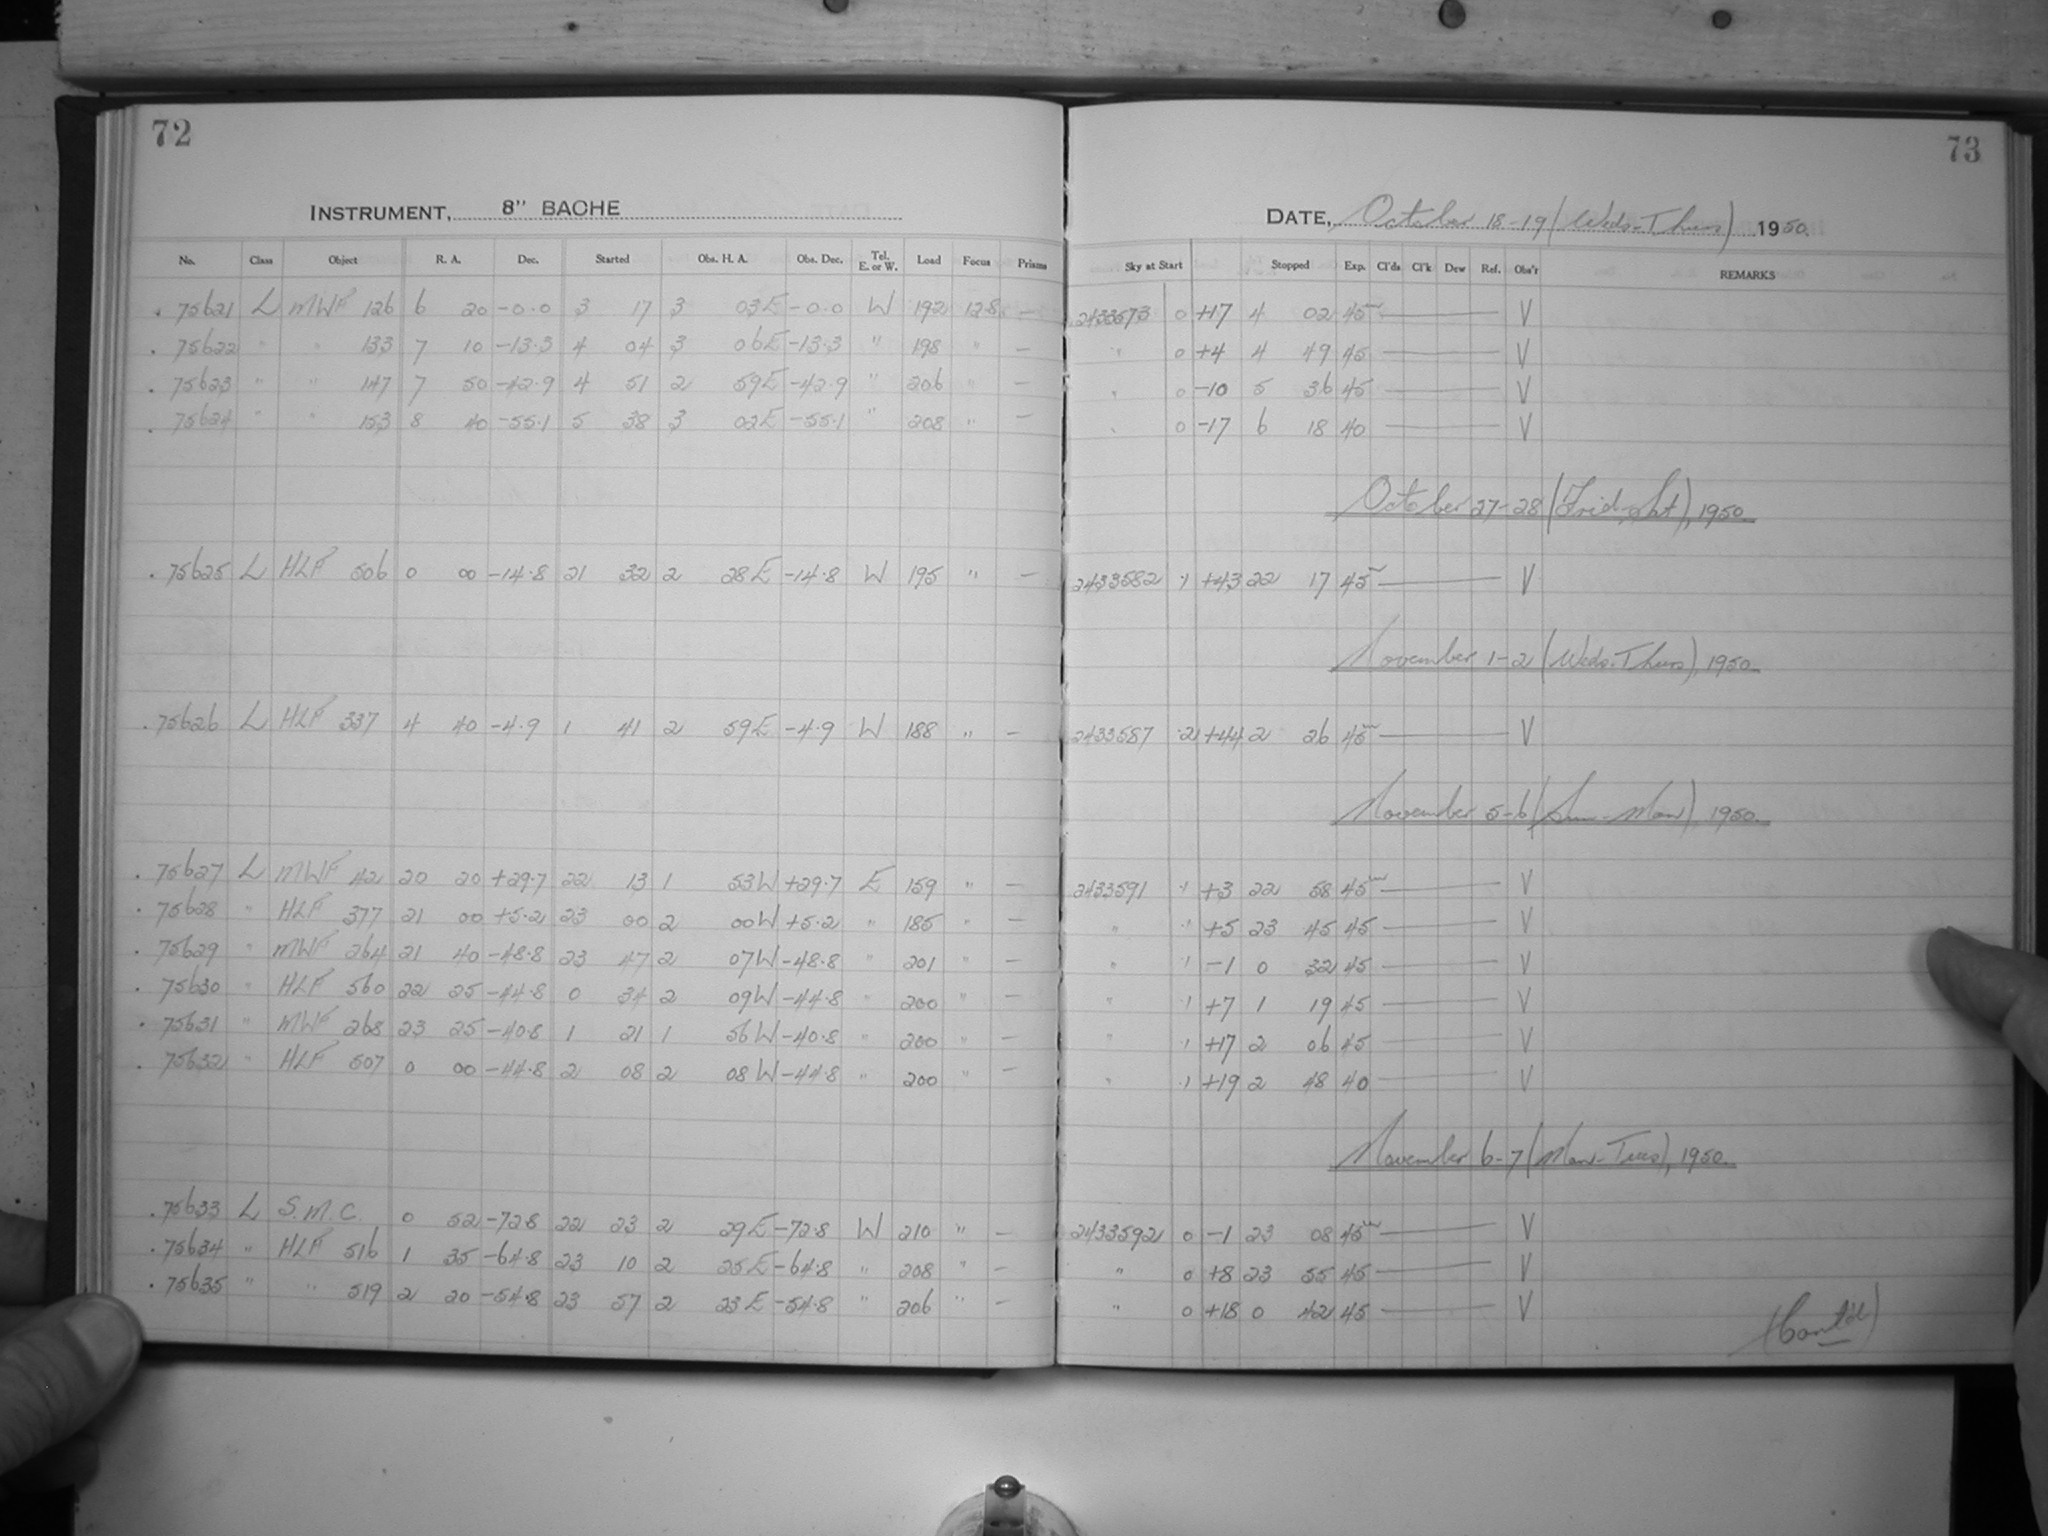 72
INSTRUMENT, 8" BACHE
No. Class Object R. A. Dec. Started Obs. H. A. Obs. Dec. Tel. E. or W. Load Focus Prisms
75621 L MWF 126 6 20 -0.0 3 17 3 03E -0.0 W 192 12.8 —
75622 " " 133 7 10 -13.3 4 04 3 06E -13.3 " 198 " —
75623 " " 147 7 50 -42.9 4 51 2 59E -42.9 " 206 " —
75624 " " 153 8 40 -55.1 5 38 3 02E -55.1 " 208 " —
75625 L HLF 506 0 00 -14.8 21 32 2 28E -14.8 W 195 " —
75626 L HLF 337 4 40 -4.9 1 41 2 59E -4.9 W 188 " —
75627 L MWF 42 20 20 +29.7 22 13 1 53W +29.7 E 159 " —
75628 " HLF 377 21 00 +5.2 23 00 2 00W +5.2 " 185 " —
75629 " MWF 264 21 40 -48.8 23 47 2 07W -48.8 " 201 " —
75630 " HLF 560 22 25 -44.8 0 34 2 09W -44.8 " 200 " —
75631 " MWF 268 23 25 -40.8 1 21 1 56W -40.8 " 200 " —
75632 " HLF 507 0 00 -44.8 2 08 2 08W -44.8 " 200 " —
75633 L S.M.C. 0 52 -72.8 22 23 2 29E -72.8 W 210 " —
75634 " HLF 516 1 35 -64.8 23 10 2 25E -64.8 " 208 " —
75635 " " 519 2 20 -54.8 23 57 2 23E -54.8 " 206 " —
73
DATE, October 18-19 (Weds-Thurs) 1950.
Sky at Start Stopped Exp. Cl'ds Cl'k Dew Ref. Obs'r REMARKS
2433573 0 +17 4 02 45m V
" 0 +4 4 49 45 V
" 0 -10 5 36 45 V
" 0 -17 6 18 40 V
October 27-28 (Frid-Sat), 1950.
2433582 .1 +43 22 17 45m V
November 1-2 (Weds-Thurs), 1950.
2433587 .2 +44 2 26 45m V
November 5-6 (Sun-Mon), 1950.
2433591 .1 +3 22 58 45m V
" .1 +5 23 45 45 V
" .1 -1 0 32 45 V
" .1 +7 1 19 45 V
" .1 +17 2 06 45 V
" .1 +19 2 48 40 V
November 6-7 (Mon-Tues), 1950.
2433592 0 -1 23 08 45m V
" 0 +8 23 55 45 V
" 0 +18 0 42 45 V
(Cont'd)